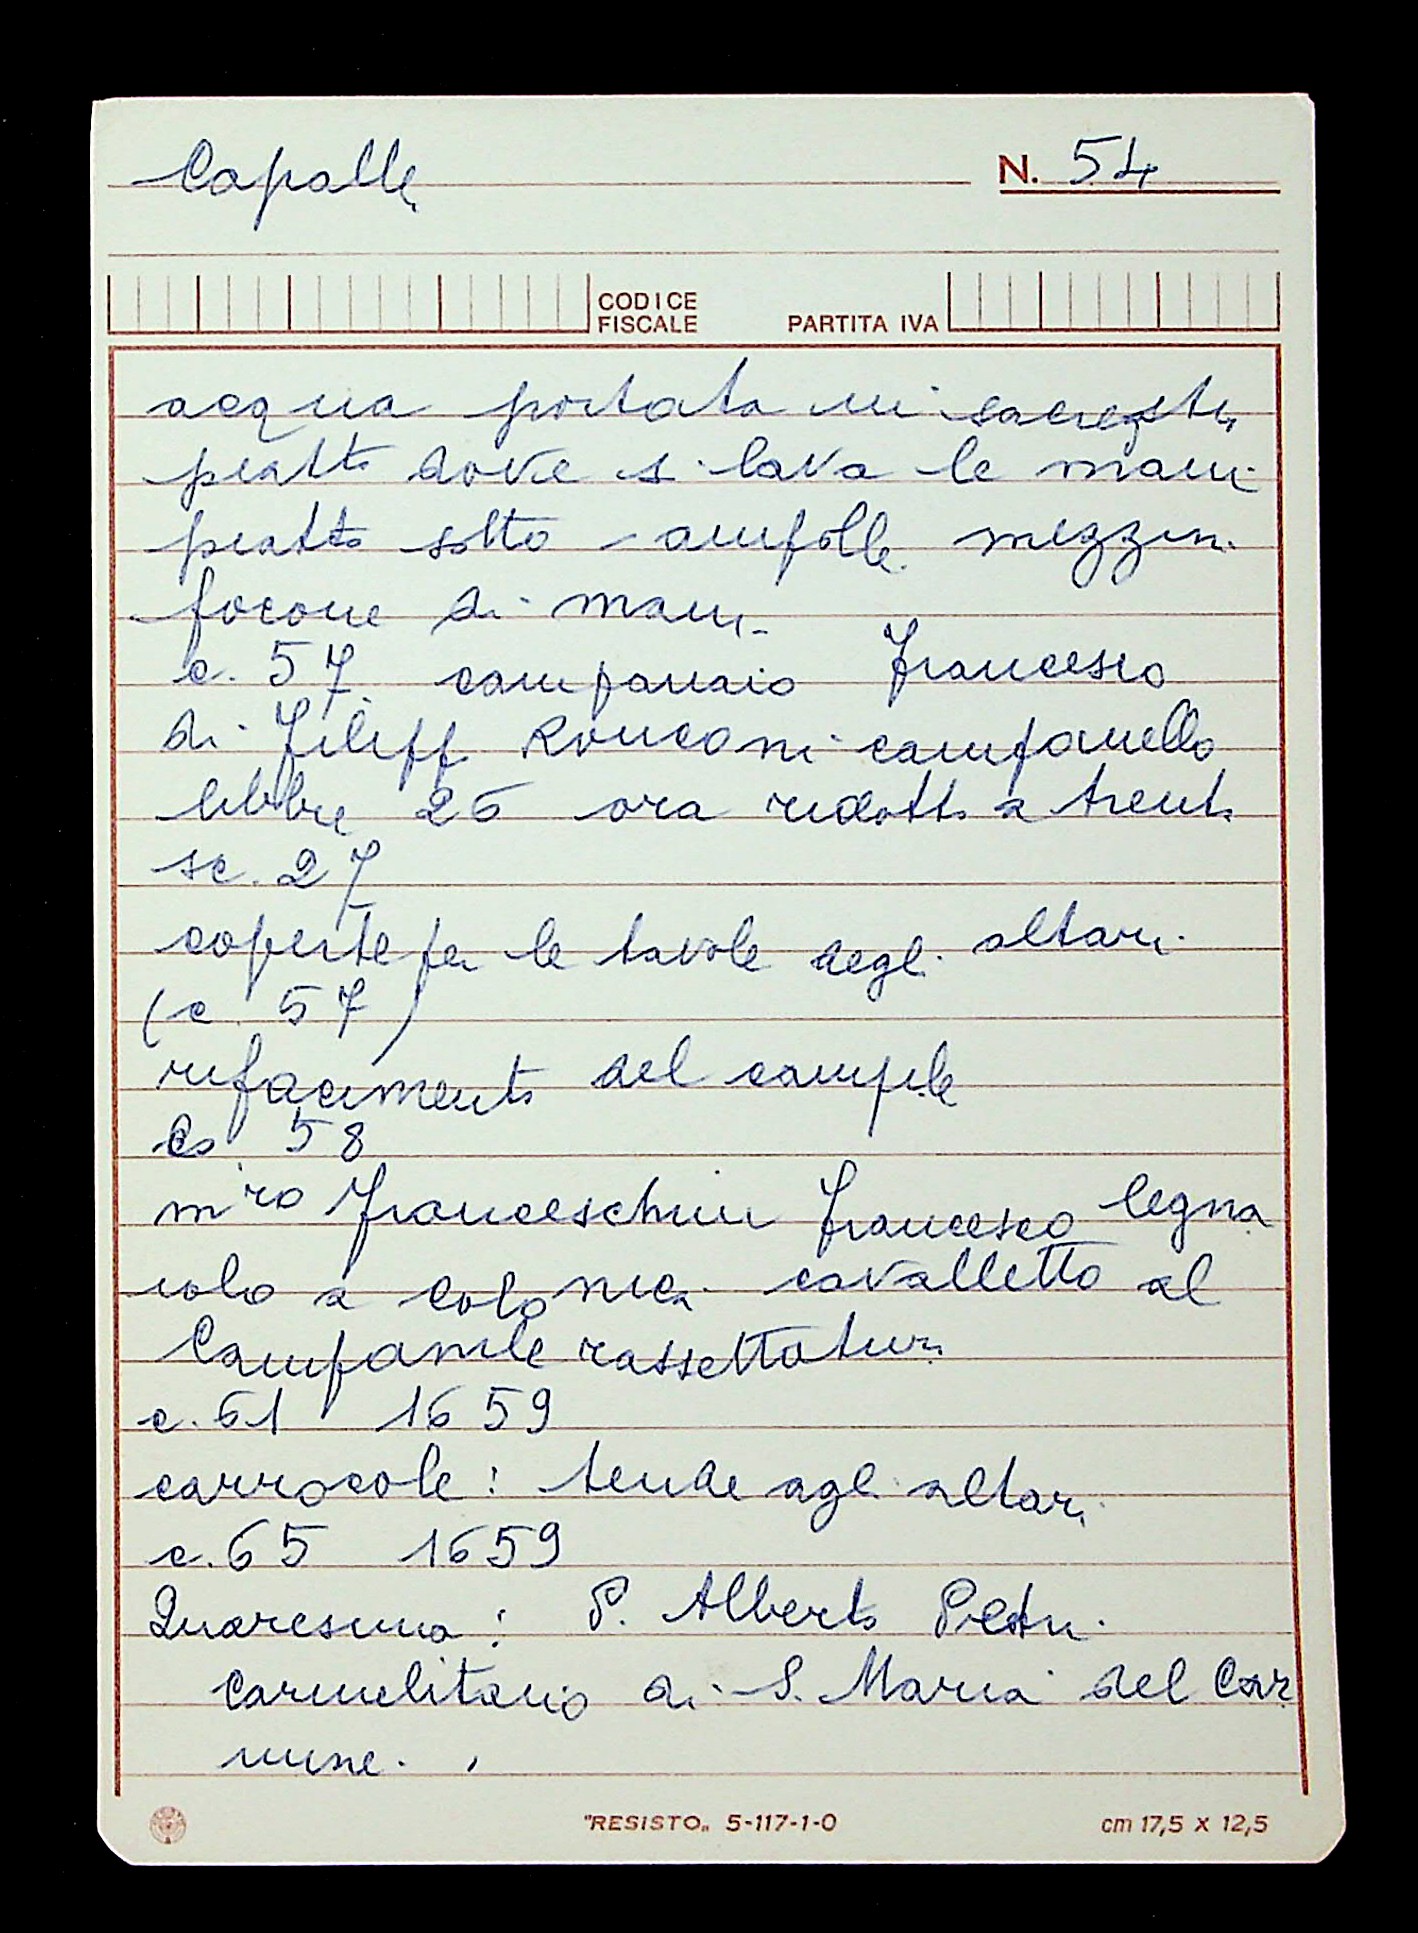 Capalle N. 54
CODICE
FISCALE PARTITA IVA
acqua portata in sacrestia
piatto dove si lava le mani
piatto sotto ampolle mezzin
focone di
c. 57 campanaio Francesco
di Filipp Ronconi campanello
libbre 26 ora ridotto a trenta
sc. 27
coperte per le tavole degli altari
(c. 57)
rifacimento del campile
Cs 58
m.ro Franceschini Francesco legna
iolo a Colonica cavalletto al
Campanile rassettatura
c. 61 1659
carrocole: tende agli altari
c. 65 1659
Quaresima: P. Alberto Pietri
Carmelitano di S. Maria del Car
mine.
"RESISTO„ 5-117-1-0 cm 17,5 x 12,5